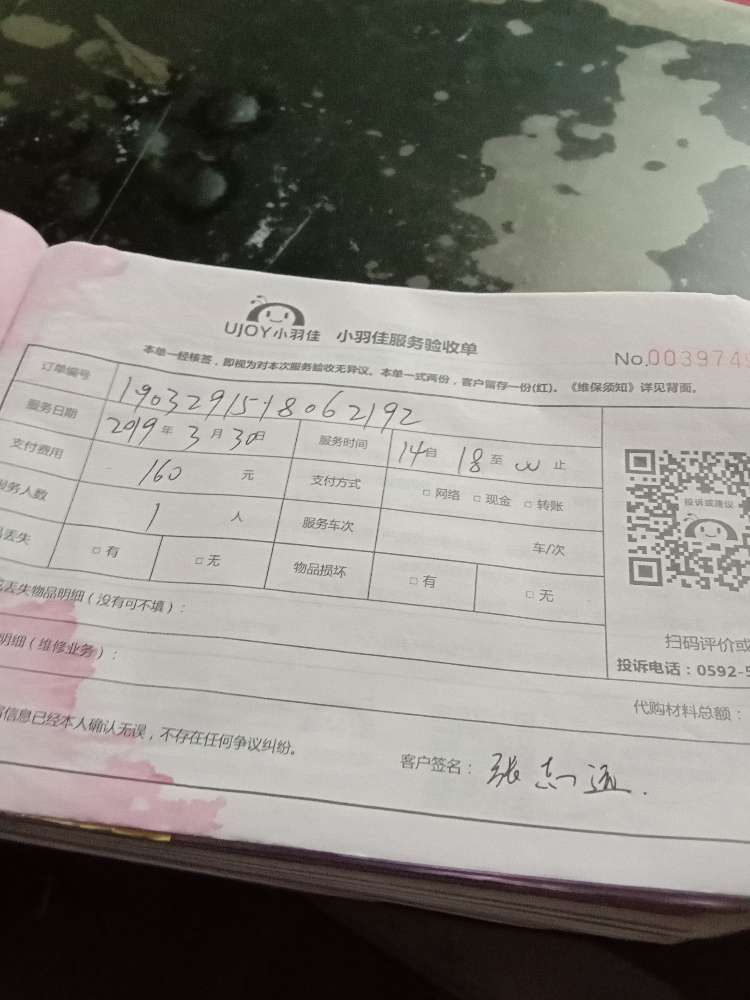 UJOY小羽佳 小羽佳服务验收单
No.0039749
本单一经核签，即视为对本次服务验收无异议。本单一式两份，客户留存一份(红)。《维保须知》详见背面。
订单编号 1903291518062192
服务日期 2019年3月30日 服务时间 14自18至00止
支付费用 160元 支付方式 □网络 □现金 □转账
服务人数 1人 服务车次 车/次
丢失 □有 □无 物品损坏 □有 □无
投诉或建议
丢失物品明细（没有可不填）：
明细（维修业务）：
扫码评价或
投诉电话：0592-5
代购材料总额：
信息已经本人确认无误，不存在任何争议纠纷。
客户签名：张志